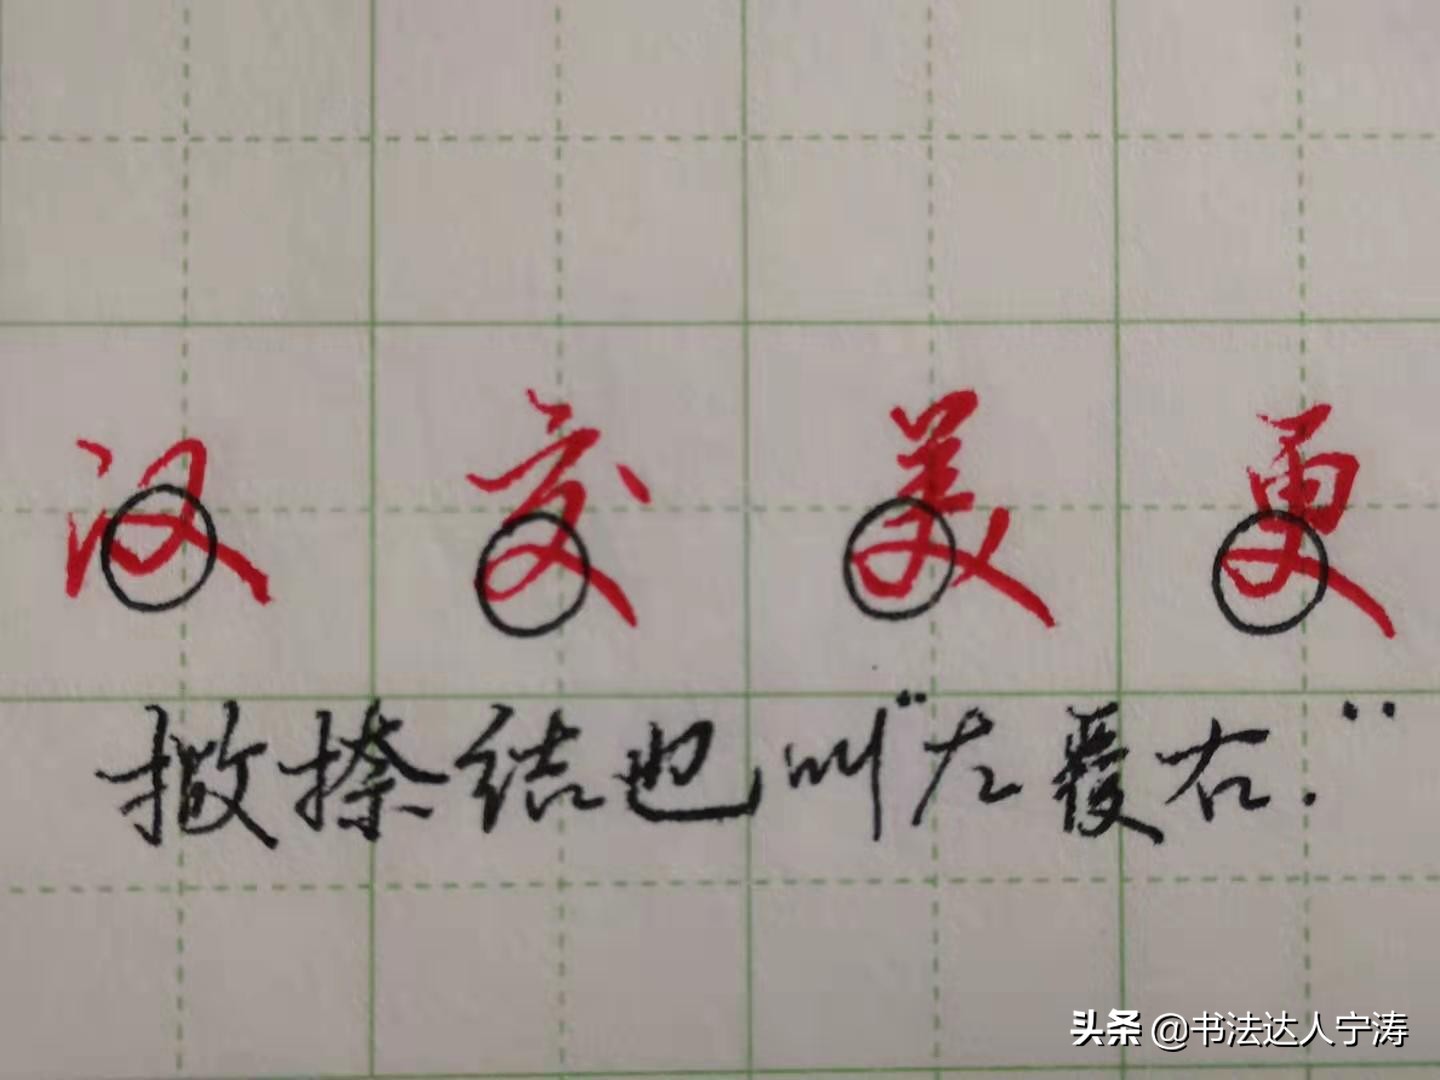 汉 交 美 更
撇捺结也叫“左覆右.”
头条 @书法达人宁涛